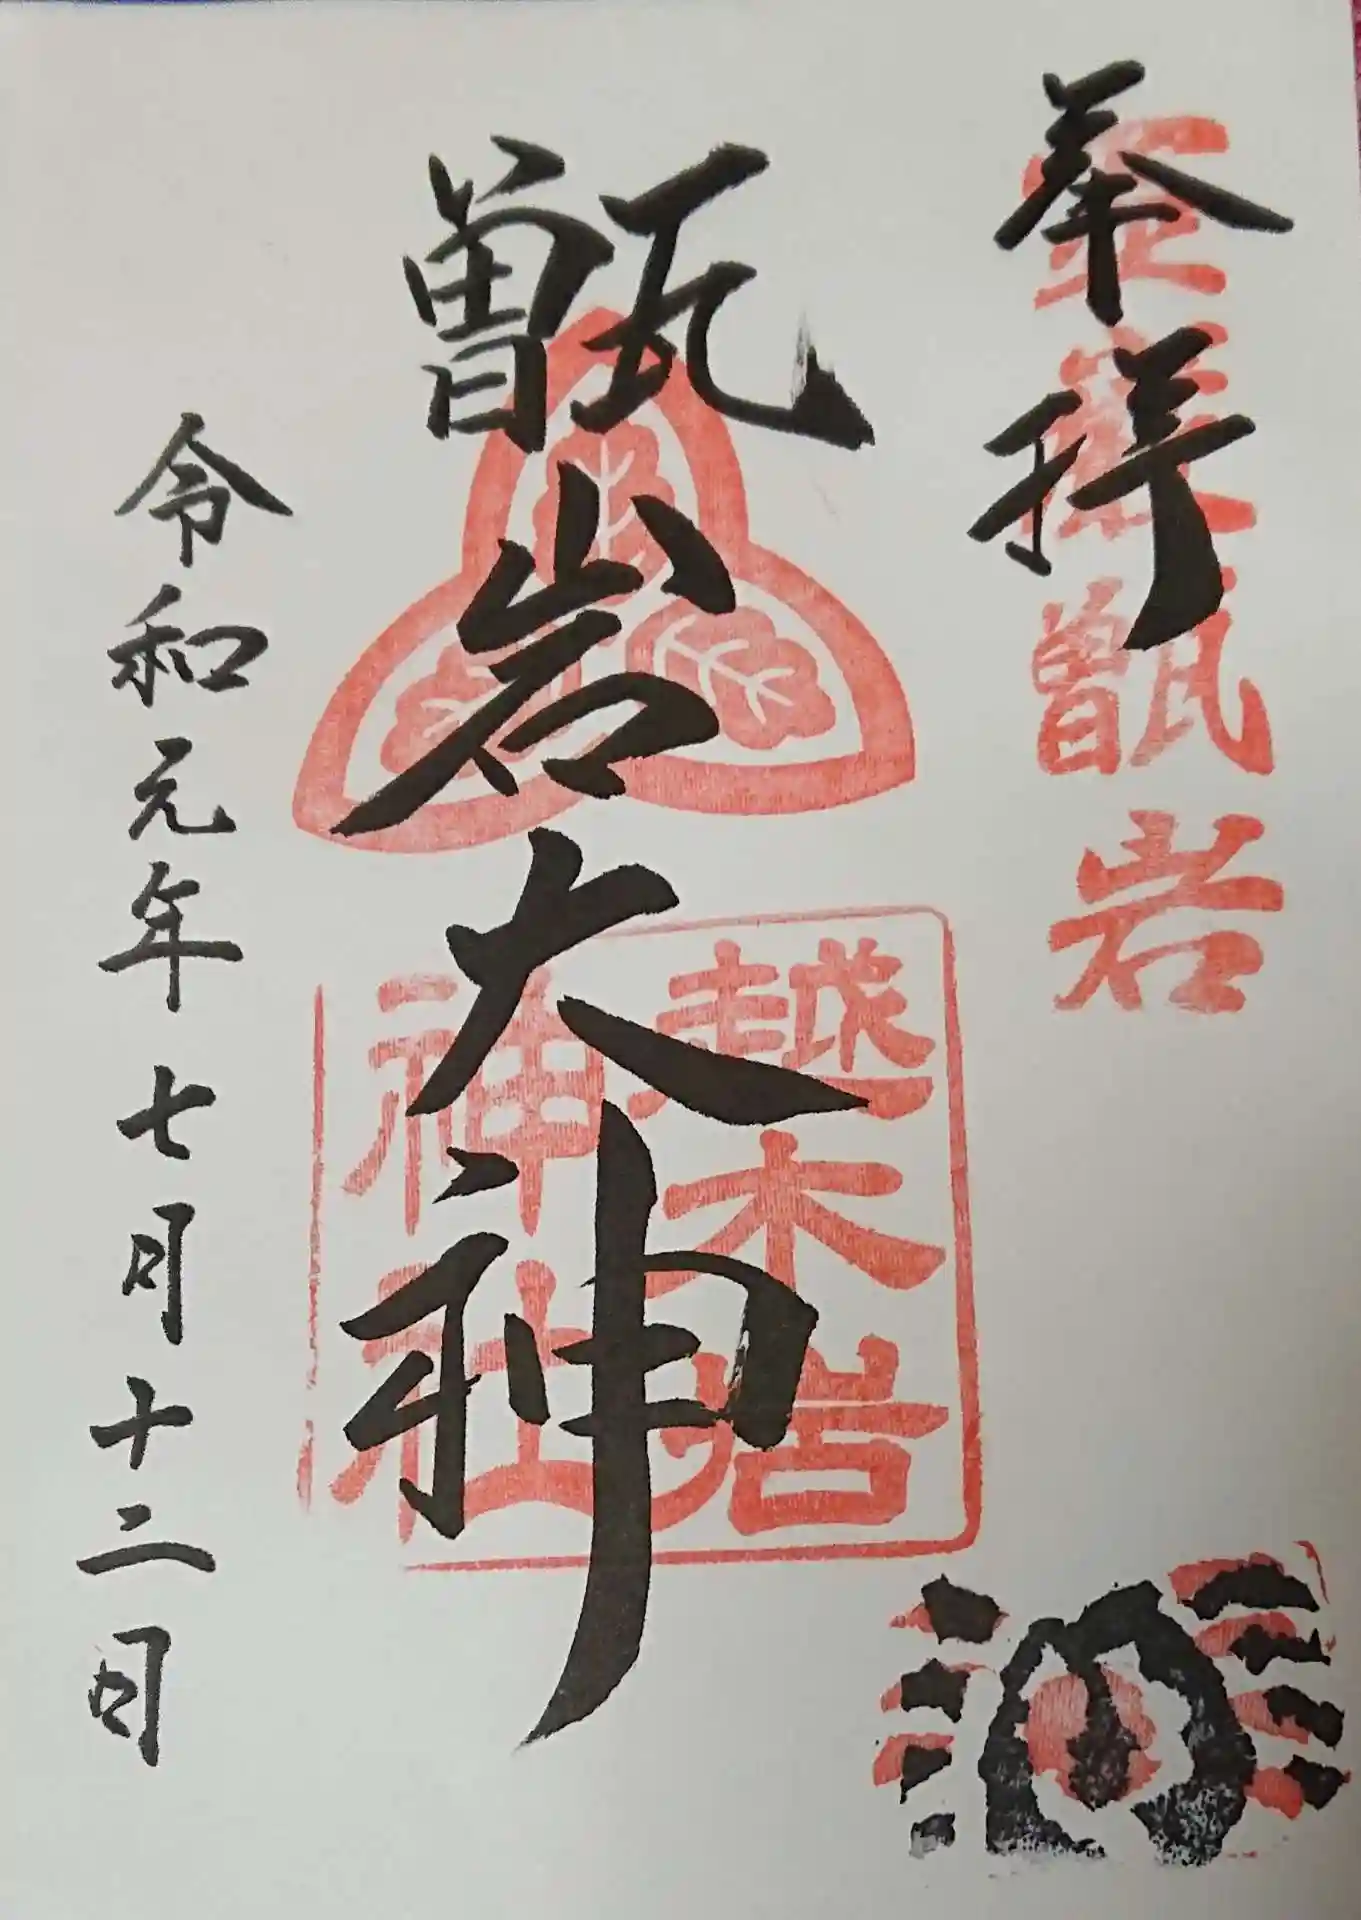 奉拝
霊驗甑岩
甑岩大神
越木岩
神社
令和元年七月十二日